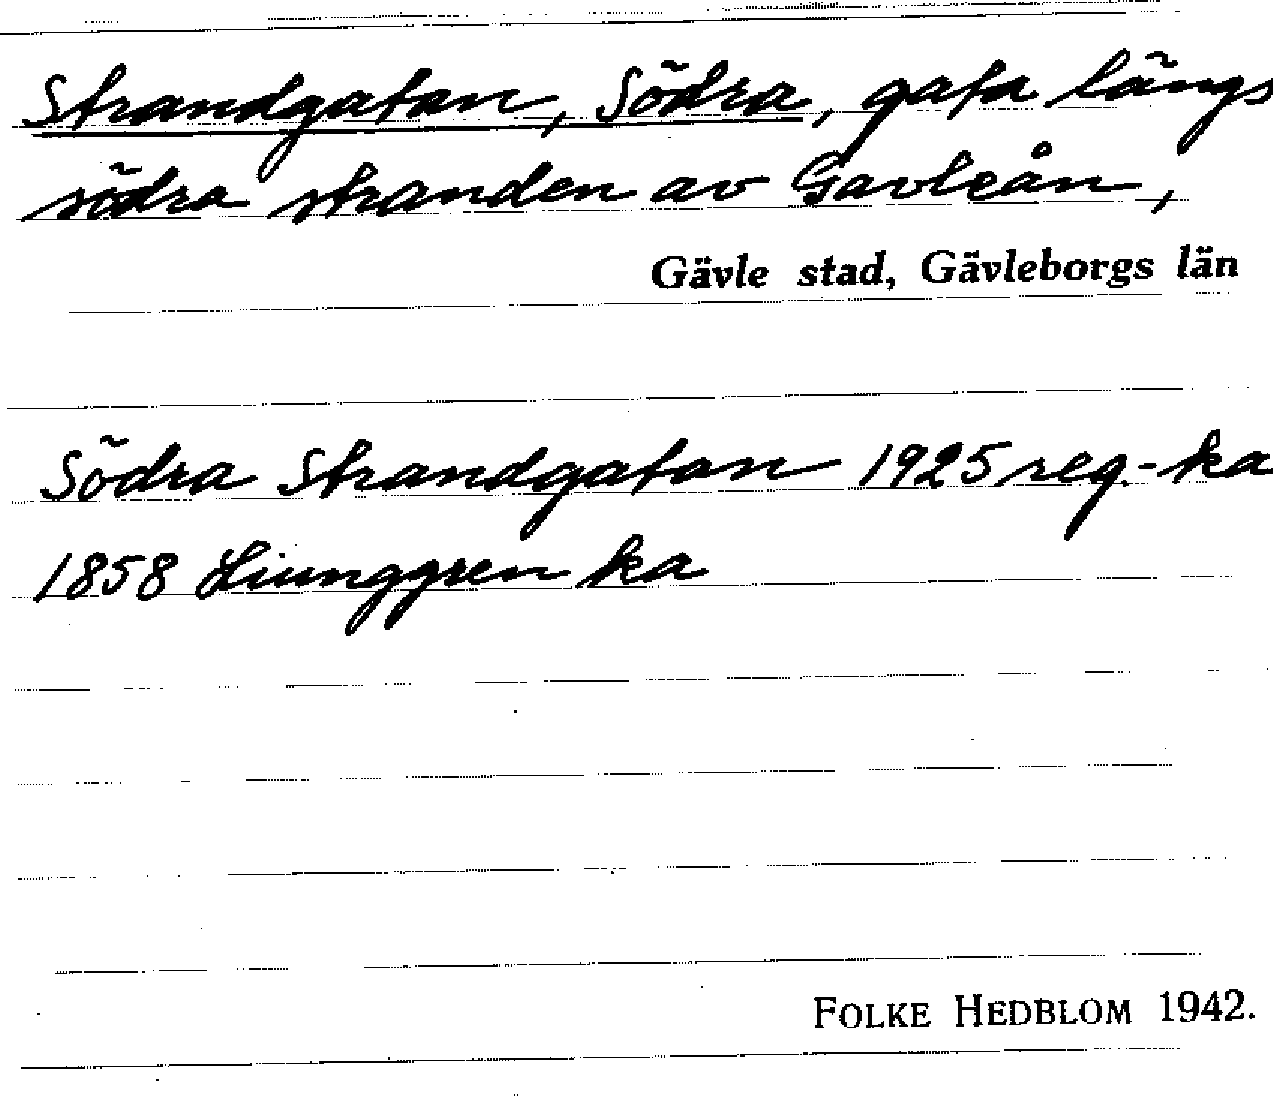 Strandgatan, Södra, gata längs
södra stranden av Gavleån,
Gävle stad, Gävleborgs län
Södra Strandgatan 1925 reg.-ka
1858 Ljunggren ka
FOLKE HEDBLOM 1942.